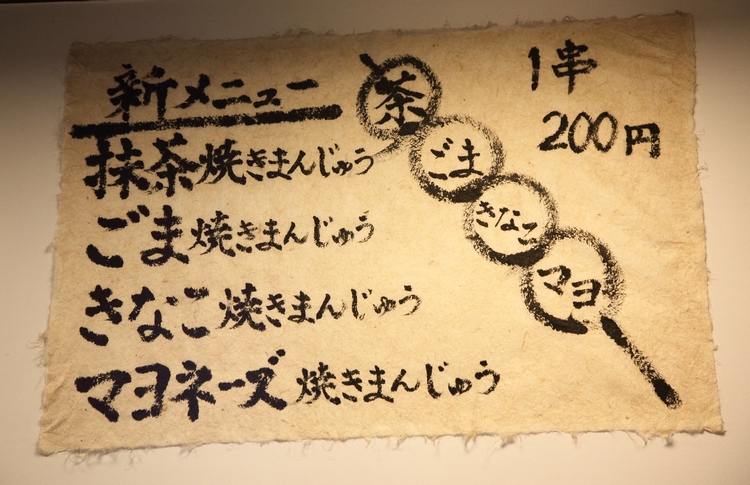 新メニュー
抹茶焼きまんじゅう
ごま焼きまんじゅう
きなこ焼きまんじゅう
マヨネーズ焼きまんじゅう
茶
ごま
きなこ
マヨ
1串
200円